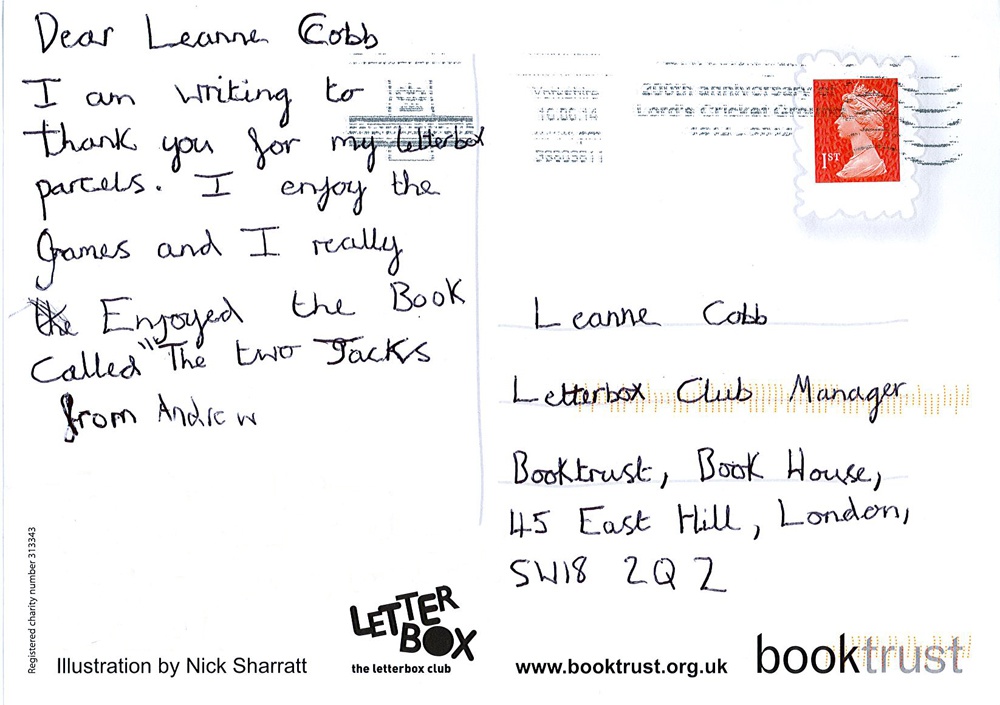 Dear Leanne Cobb
I am writing to
thank you for my letterbox
parcels. I enjoy the
Games and I really
Enjoyed the Book
Called "The two Jacks
from Andrew
Yorkshire
16.06.14
38803811
200th anniversary
Lord's Cricket
1ST
Leanne Cobb
Letterbox Club Manager
Booktrust, Book House,
45 East Hill, London,
SW18 2QZ
Registered charity number 313343
Illustration by Nick Sharratt
LETTER
BOX
the letterbox club
www.booktrust.org.uk
booktrust